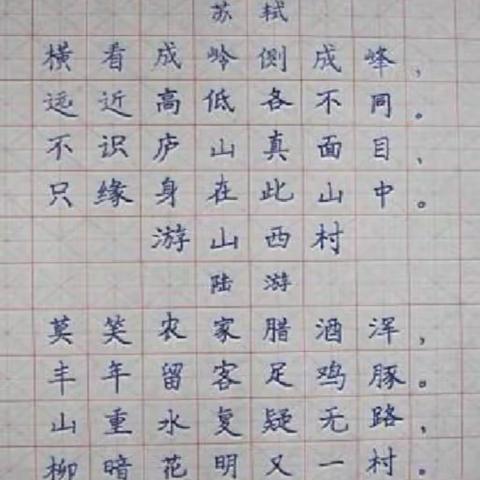 苏轼
横看成岭侧成峰，
远近高低各不同。
不识庐山真面目、
只缘身在此山中。
游山西村
陆游
莫笑农家腊酒浑，
丰年留客足鸡豚。
山重水复疑无路，
柳暗花明又一村。